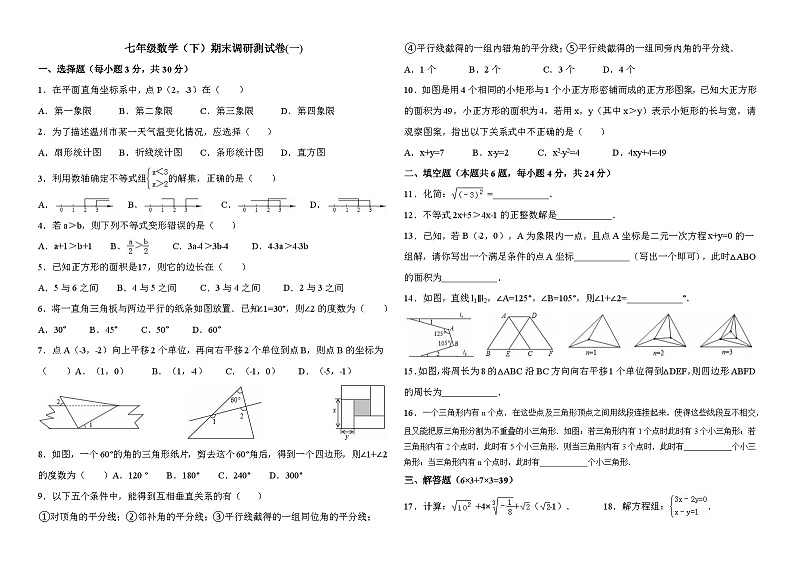 七年级数学（下）期末调研测试卷(一)
一、选择题（每小题3分，共30分）
1．在平面直角坐标系中，点P（2，-3）在（　　）
A．第一象限　　B．第二象限　　C．第三象限　　D．第四象限
2．为了描述温州市某一天气温变化情况，应选择（　　）
A．扇形统计图　　B．折线统计图　　C．条形统计图　　D．直方图
3．利用数轴确定不等式组{x＜3 x＞2的解集，正确的是（　　）
A． 0 1 2 3　B． 0 1 2 3　C． 0 1 2 3　D． 0 1 2 3
4．若a＞b，则下列不等式变形错误的是（　　）
A．a+1＞b+1　B．a/2＞b/2　C．3a-4＞3b-4　D．4-3a＞4-3b
5．已知正方形的面积是17，则它的边长在（　　）
A．5与6之间　B．4与5之间　C．3与4之间　D．2与3之间
6．将一直角三角板与两边平行的纸条如图放置．已知∠1=30°，则∠2的度数为（　　）
A．30°　　B．45°　　C．50°　　D．60°
7．点A（-3，-2）向上平移2个单位，再向右平移2个单位到点B，则点B的坐标为
（　　）A．（1，0）　　B．（1，-4）　　C．（-1，0）　　D．（-5，-1）
2 1
60° 1 2
x y
8．如图，一个60°的角的三角形纸片，剪去这个60°角后，得到一个四边形，则∠1+∠2
的度数为（　　）A．120 °　　B．180°　　C．240°　　D．300°
9．以下五个条件中，能得到互相垂直关系的有（　　）
①对顶角的平分线；②邻补角的平分线；③平行线截得的一组同位角的平分线；
④平行线截得的一组内错角的平分线；⑤平行线截得的一组同旁内角的平分线．
A．1个　　B．2个　　C．3个　　D．4个
10．如图是用4个相同的小矩形与1个小正方形密铺而成的正方形图案，已知大正方形
的面积为49，小正方形的面积为4，若用x，y（其中x＞y）表示小矩形的长与宽，请
观察图案，指出以下关系式中不正确的是（　　）
A．x+y=7　　B．x-y=2　　C．x²-y²=4　　D．4xy+4=49
二、填空题（本题共6题，每小题4分，共24分）
11．化简：√(－3)² =＿＿＿＿．
12．不等式2x+5＞4x-1的正整数解是＿＿＿＿．
13．已知，若B（-2，0），A为象限内一点，且点A坐标是二元一次方程x+y=0的一
组解，请你写出一个满足条件的点A坐标＿＿＿＿（写出一个即可），此时△ABO
的面积为＿＿＿＿．
14．如图，直线l₁∥l₂，∠A=125°，∠B=105°，则∠1+∠2=＿＿＿＿°．
l₁ 125° A 105° B l₂ 2
A D B E C F
n=1 n=2 n=3
15．如图，将周长为8的△ABC沿BC方向向右平移1个单位得到△DEF，则四边形ABFD
的周长为＿＿＿＿．
16．一个三角形内有n个点，在这些点及三角形顶点之间用线段连接起来，使得这些线段互不相交，
且又能把原三角形分割为不重叠的小三角形．如图：若三角形内有1个点时此时有3个小三角形；若
三角形内有2个点时，此时有5个小三角形．则当三角形内有3个点时，此时有＿＿＿＿个小三
角形；当三角形内有n个点时，此时有＿＿＿＿个小三角形．
三、解答题（6×3+7×3=39）
17．计算：√10² +4×∛－1/8+√2（√2-1）．　　18．解方程组：{3x－2y=0 x－y=1．